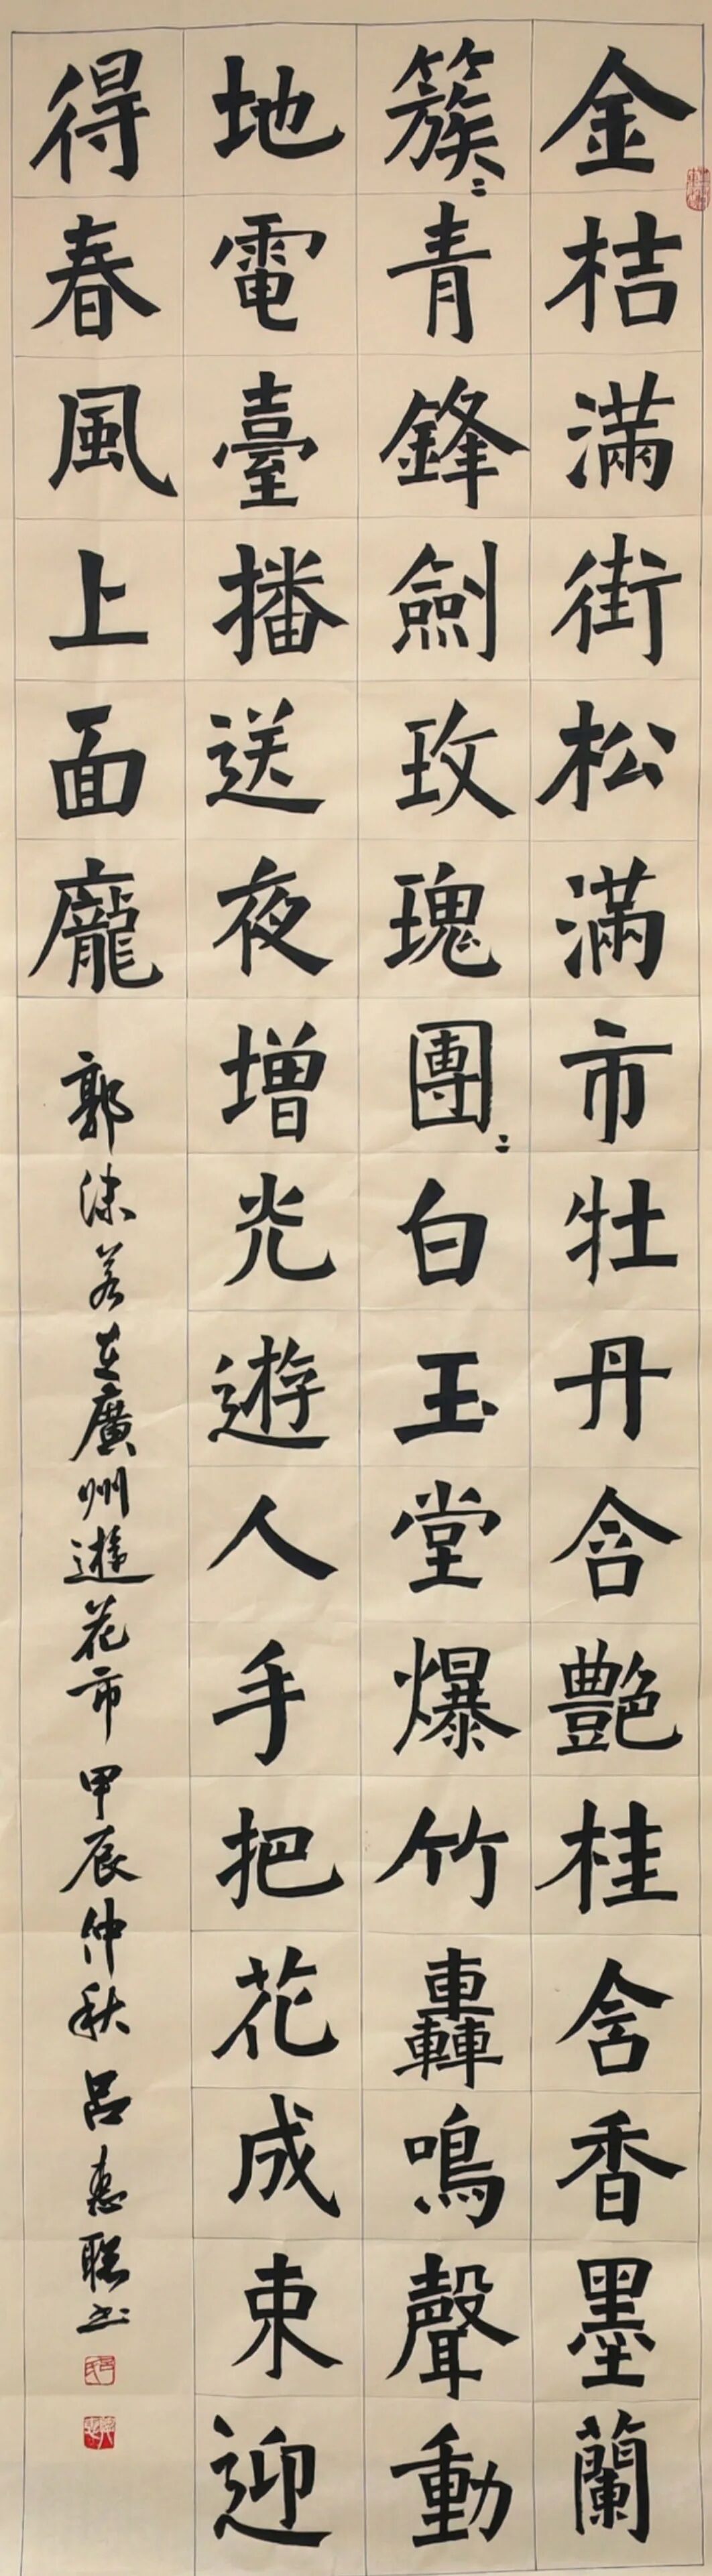 金桔滿街松滿市牡丹含艷桂含香墨蘭
簇〻青鋒劍玫瑰團〻白玉堂爆竹轟鳴聲動
地電臺播送夜增光遊人手把花成束迎
得春風上面龐
郭沫若在廣州遊花市甲辰仲秋呂惠聰书